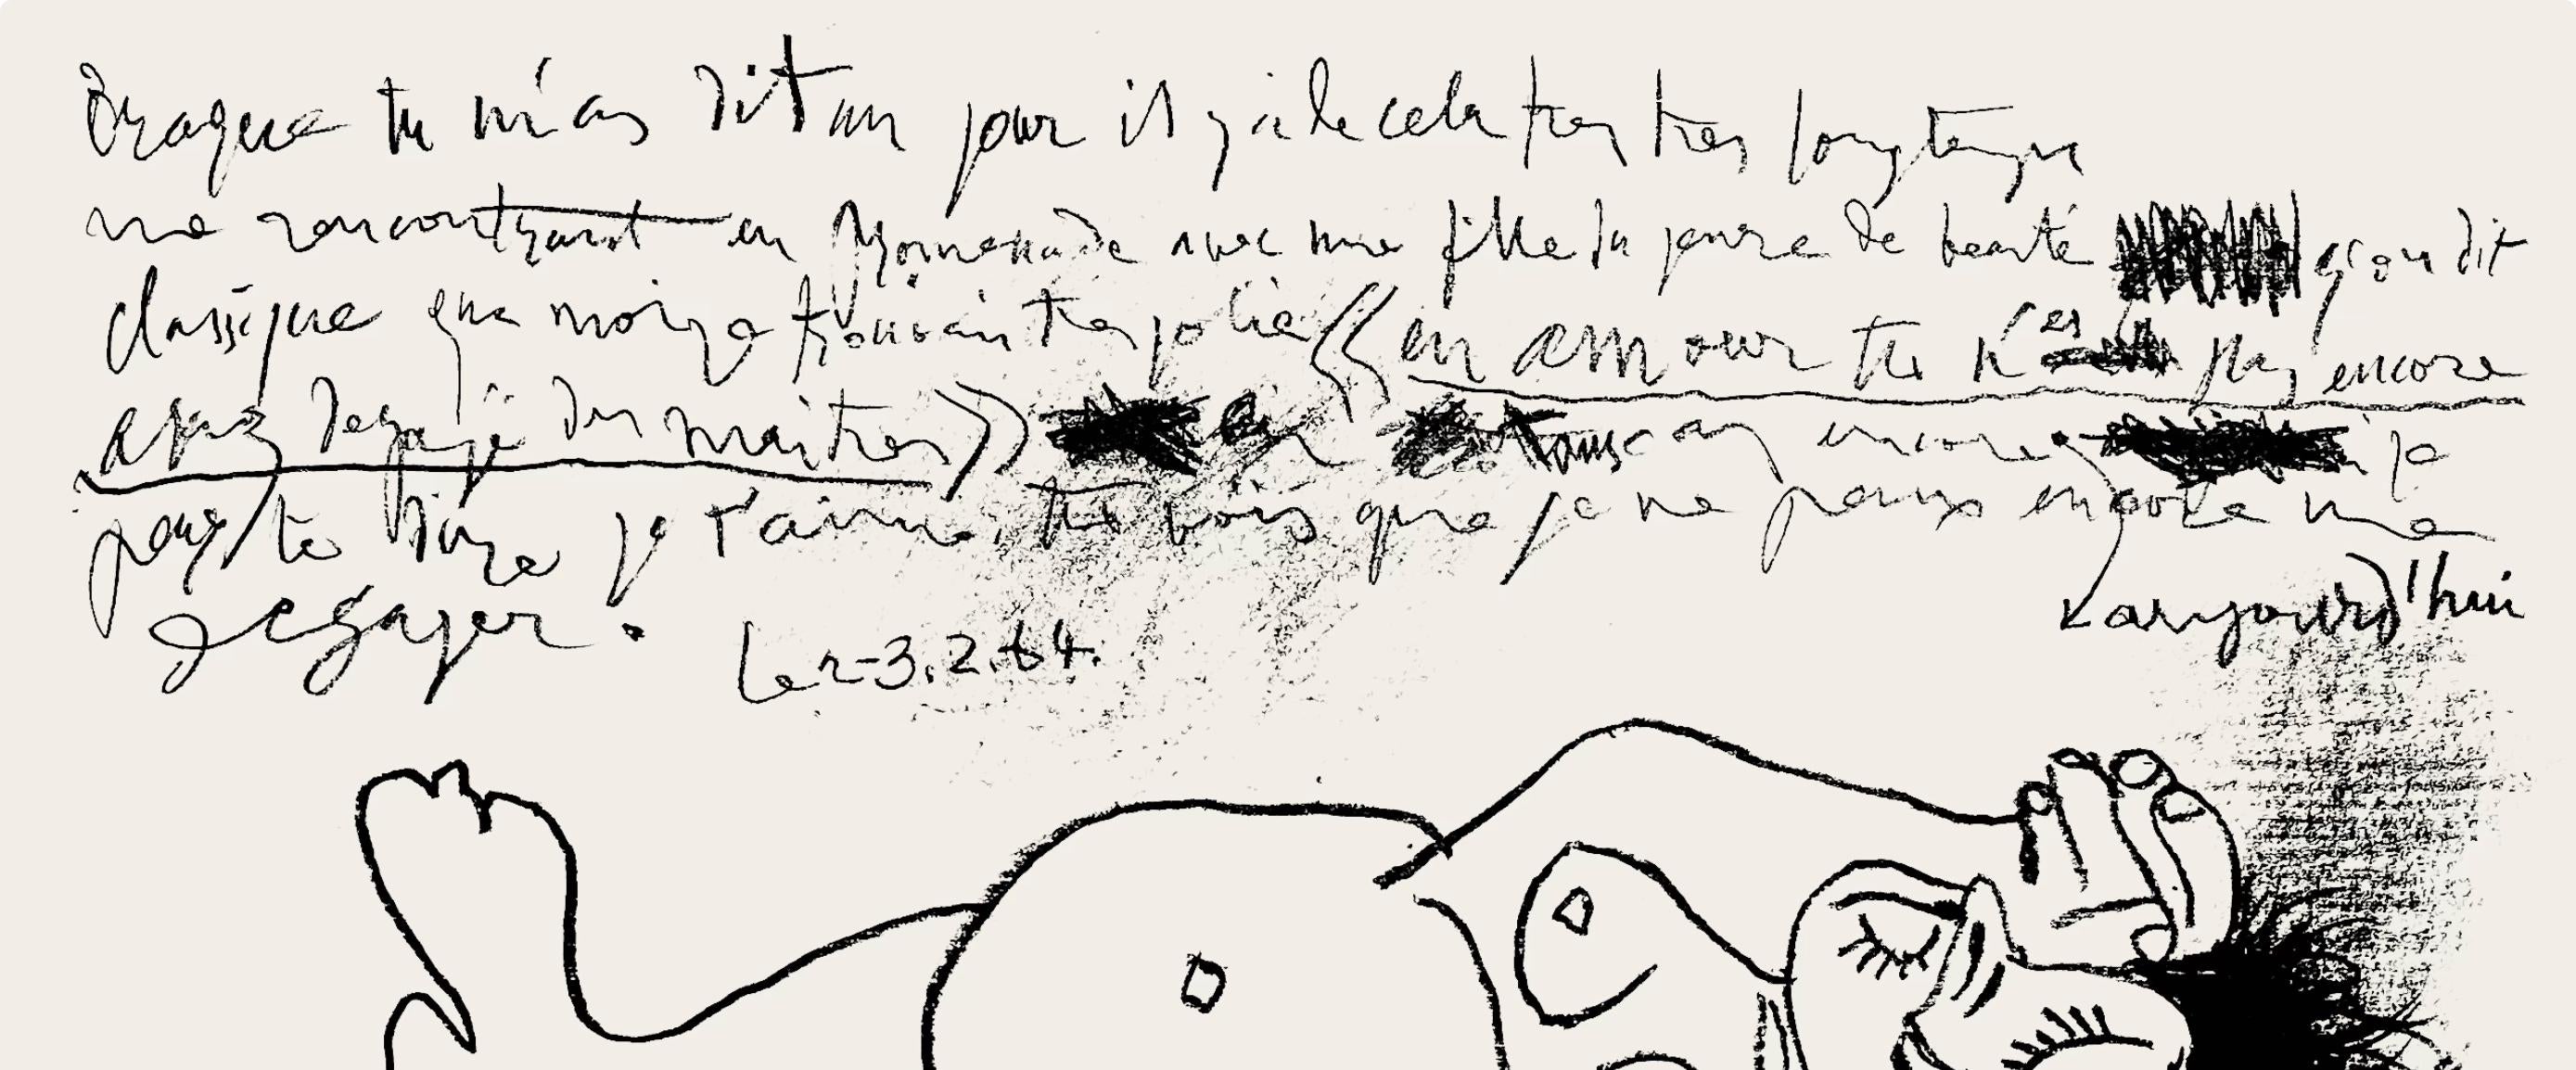 Braque tu m'as dit un jour il y a de cela tres tres longtemps
me rencontrant en promenade avec une fille du genre de beauté qu'on dit
classique que moi je trouvais tres jolie « en amour tu n'es pas encore
assez degagé des maitres » en tous cas encore je
peux te dire je t'aime, tu vois que je ne peux encore me
aujourd'hui
degager.
Le 2-3.2.64.